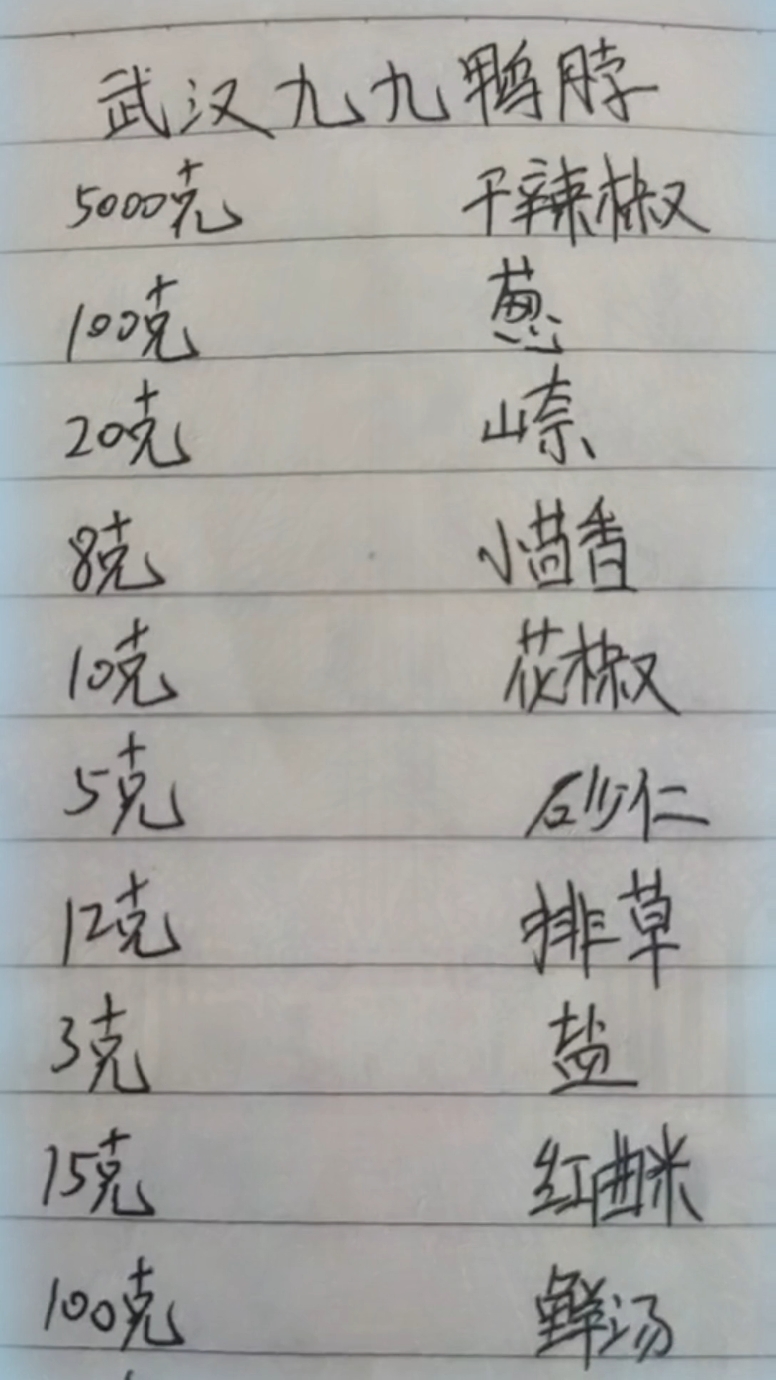 武汉九九鸭脖
5000克 干辣椒
100克 葱
20克 山奈
8克 小茴香
10克 花椒
5克 砂仁
12克 排草
3克 盐
15克 红曲米
100克 鲜汤